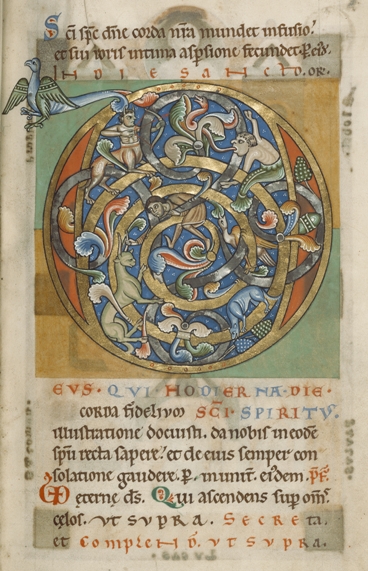 Sci spc dne corda nra mundet infusio.
et sui roris intima aspsione fecundet. P. eid.
IN DIE SANCTO. OR.
D
EUS · QUI HODIERNA DIE ·
corda fidelium SCI · SPIRITU ·
illustratione docuisti. da nobis in eode
spu recta sapere. et de eius semper con
solatione gaudere. P. eiusdem. pf.
eterne ds. Qui ascendens sup oms
celos. UT SUPRA. Secreta.
et COMPLEND. UT SUPRA.